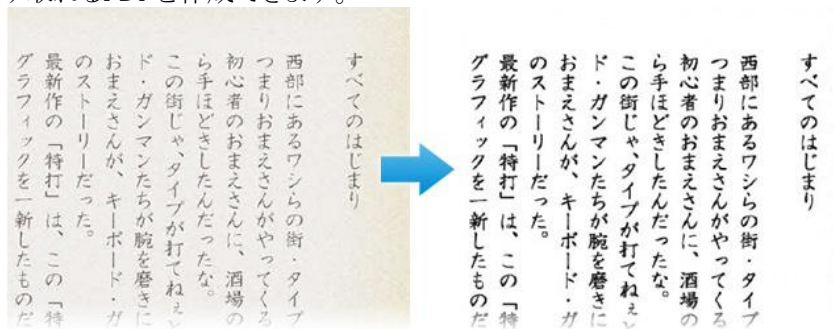 すべてのはじまり
西部にあるワシらの街・タイプ
つまりおまえさんがやってくる
初心者のおまえさんに、酒場の
ら手ほどきしたんだったな。
この街じゃ、タイプが打てねぇと
ド・ガンマンたちが腕を磨きに
おまえさんが、キーボード・ガ
のストーリーだった。
最新作の「特打」は、この「特
グラフィックを一新したものだ
すべてのはじまり
西部にあるワシらの街・タイプ
つまりおまえさんがやってくる
初心者のおまえさんに、酒場の
ら手ほどきしたんだったな。
この街じゃ、タイプが打てねぇと
ド・ガンマンたちが腕を磨きに
おまえさんが、キーボード・ガ
のストーリーだった。
最新作の「特打」は、この「特
グラフィックを一新したものだ